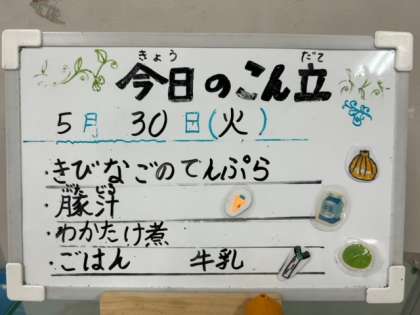 きょう だて
今日のこん立
5月 30日(火)
・きびなごのてんぷら
ぶた じる
・豚汁
・わかたけ煮
・ごはん 牛乳